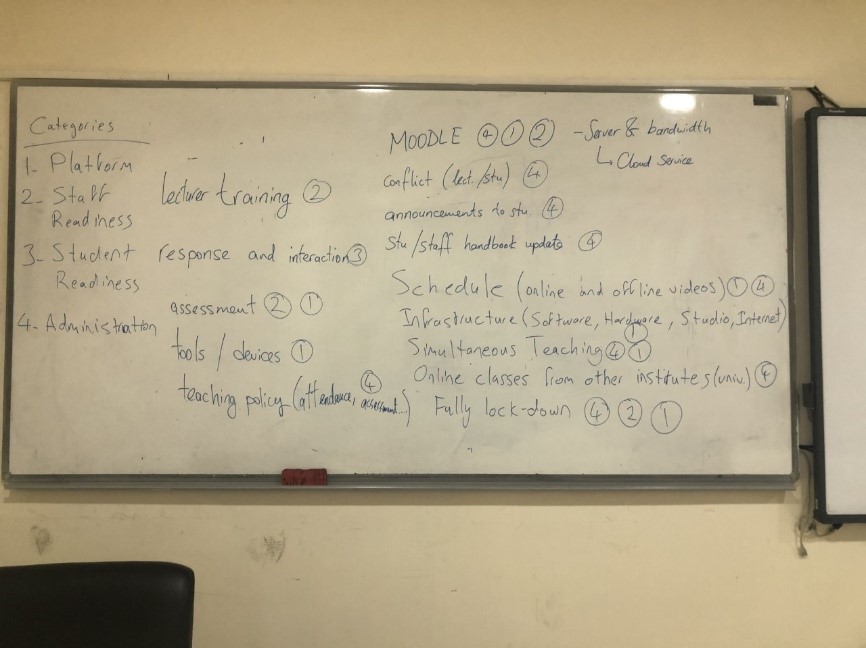 Categories
1- Platform
2- Staff
Readiness
3- Student
Readiness
4- Administration
lecturer training ②
response and interaction ③
assessment ② ①
tools / devices ①
teaching policy (attendance, assessment...) ④
MOODLE ④ ① ②
- Server & bandwidth
↳ Cloud Service
conflict (lect./stu) ④
announcements to stu. ④
Stu/staff handbook update ④
Schedule (online and offline videos) ① ④
Infrastructure (Software, Hardware, Studio, Internet)
①
Simultaneous Teaching ④ ①
Online classes from other institutes (univ.) ④
Fully lock-down ④ ② ①